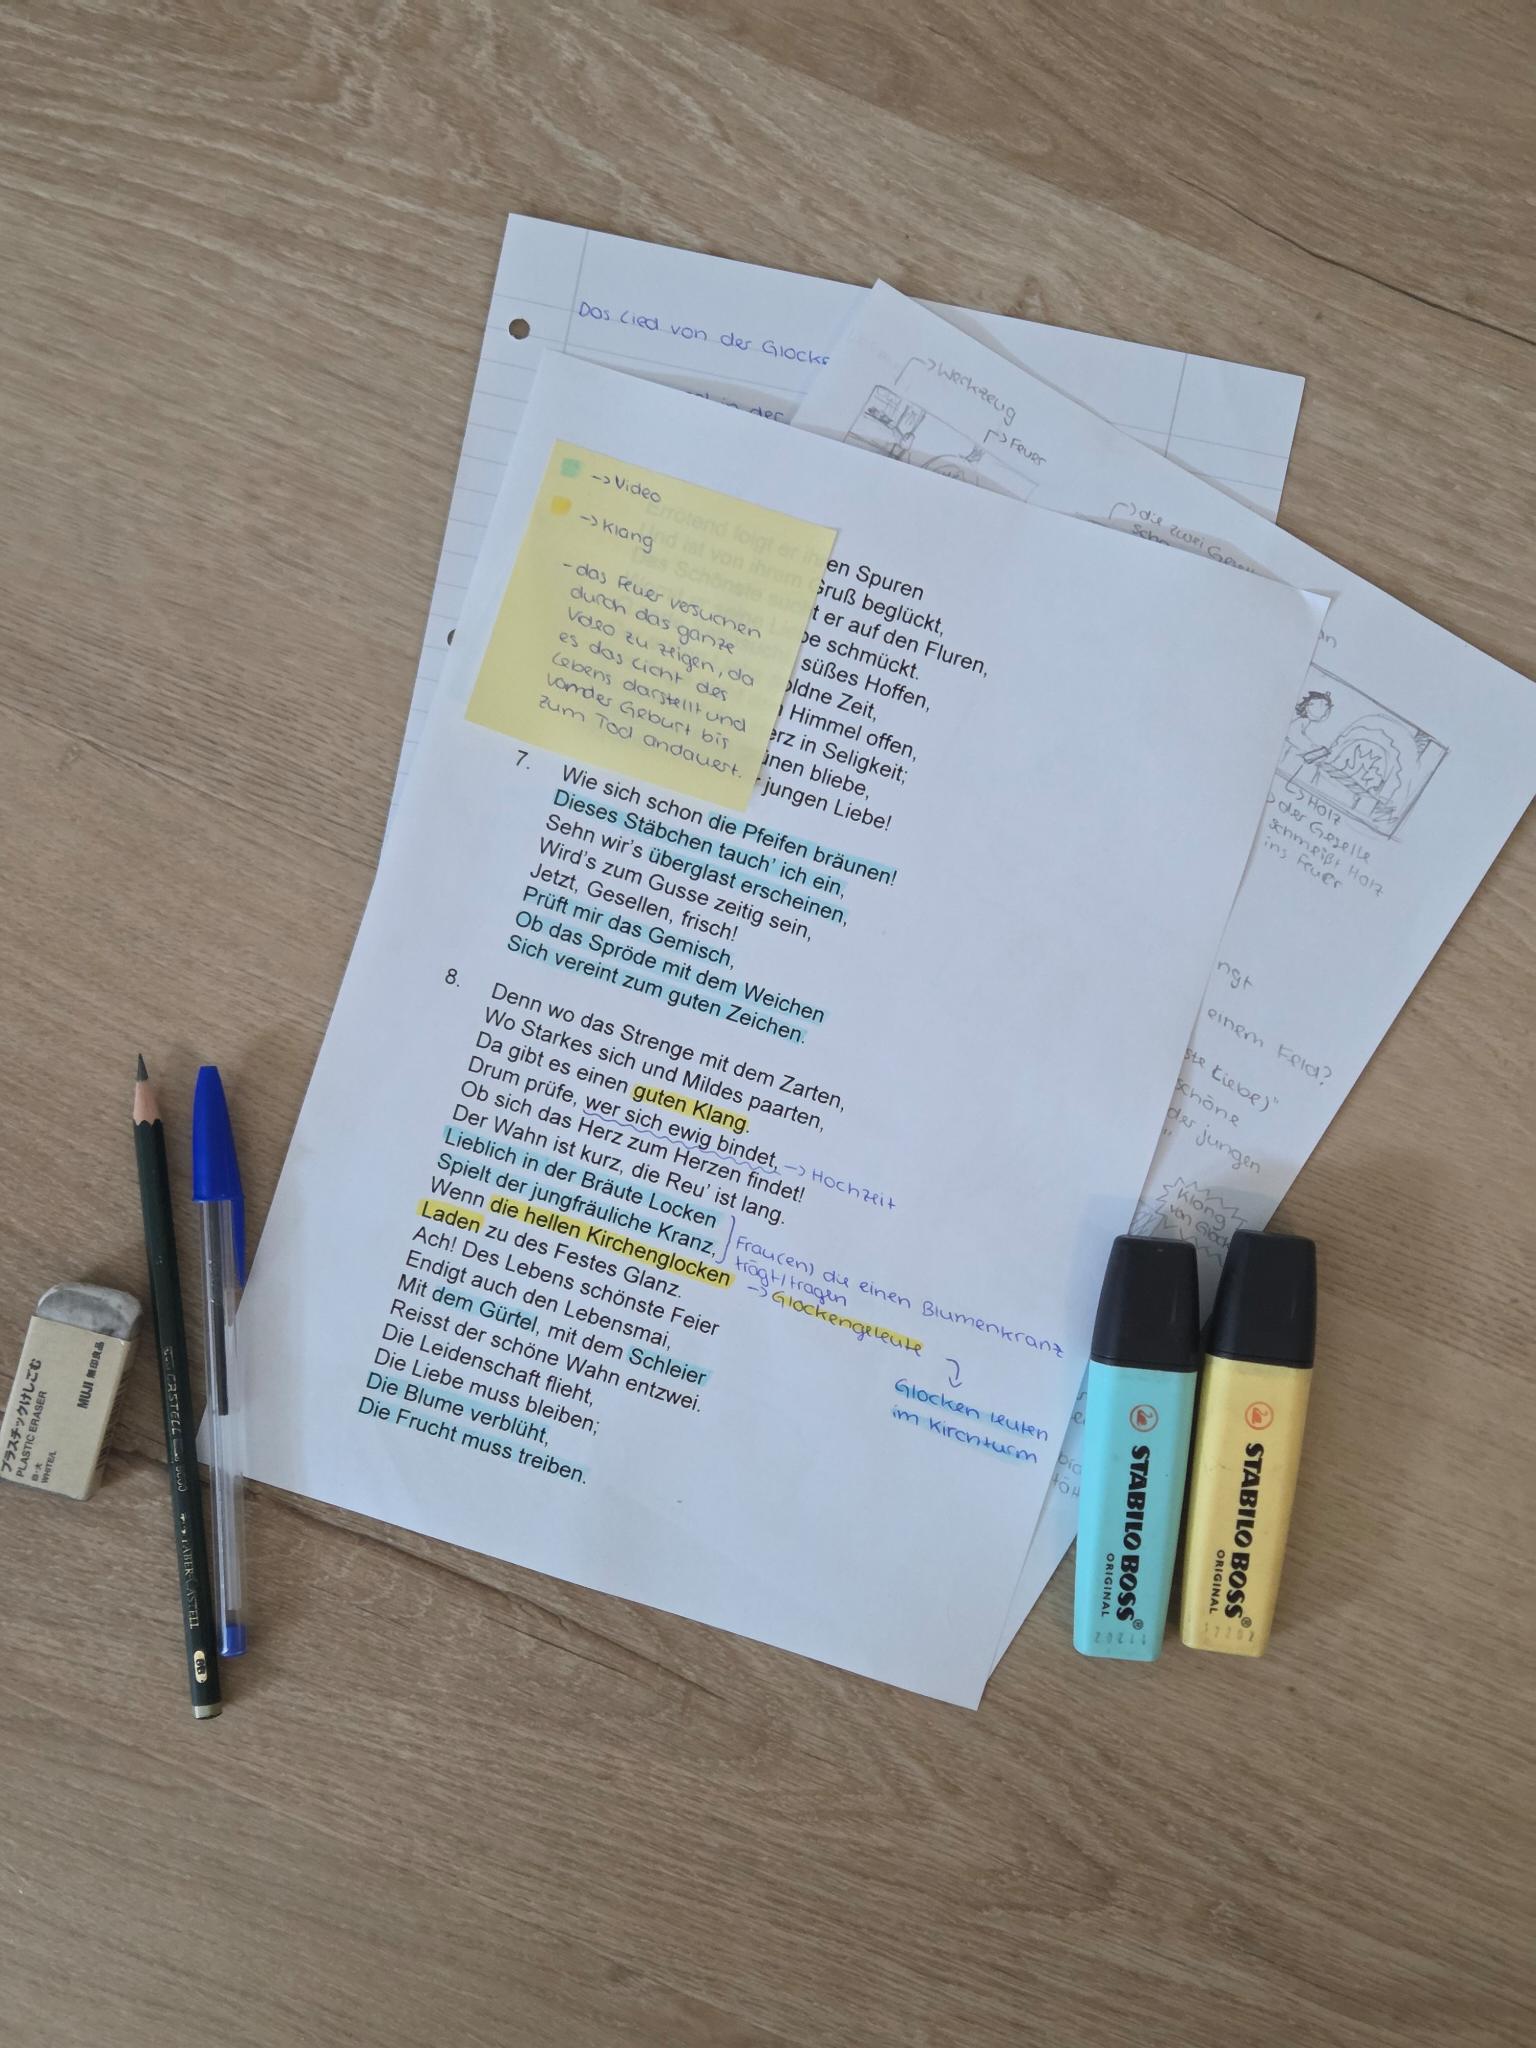 Das Lied von der Glocke
in der
-> Werkzeug
-> Feuer
-> die zwei
-> Video
-> Klang
- das Feuer versuchen
durch das ganze
Video zu zeigen, da
es das Licht des
Lebens darstellt und
von der Geburt bis
zum Tod andauert.
Errötend folgt er ihren Spuren
Und ist von ihrem Gruß beglückt,
Das Schönste sucht er auf den Fluren,
schmückt.
süßes Hoffen,
Zeit,
Himmel offen,
in Seligkeit;
bliebe,
jungen Liebe!
7. Wie sich schon die Pfeifen bräunen!
Dieses Stäbchen tauch' ich ein,
Sehn wir's überglast erscheinen,
Wird's zum Gusse zeitig sein,
Jetzt, Gesellen, frisch!
Prüft mir das Gemisch,
Ob das Spröde mit dem Weichen
Sich vereint zum guten Zeichen.
8. Denn wo das Strenge mit dem Zarten,
Wo Starkes sich und Mildes paarten,
Da gibt es einen guten Klang.
Drum prüfe, wer sich ewig bindet, -> Hochzeit
Ob sich das Herz zum Herzen findet!
Der Wahn ist kurz, die Reu' ist lang.
Lieblich in der Bräute Locken
Spielt der jungfräuliche Kranz,
Wenn die hellen Kirchenglocken
Laden zu des Festes Glanz.
Ach! Des Lebens schönste Feier
Endigt auch den Lebensmai,
Mit dem Gürtel, mit dem Schleier
Reisst der schöne Wahn entzwei.
Die Leidenschaft flieht,
Die Liebe muss bleiben;
Die Blume verblüht,
Die Frucht muss treiben.
Frau(en) die einen Blumenkranz
trägt/tragen
-> Glockengeleute
Glocken leuten
im Kirchturm
-> Holz
der Geselle
schmeißt Holz
ins Feuer
einem Feld?
Liebe)"
schöne
der jungen
Klang
von
STABILO BOSS®
ORIGINAL
STABILO BOSS®
ORIGINAL
プラスチックけしごむ
PLASTIC ERASER
白・大
WHITE/L
MUJI 無印良品
CASTELL 9000
FABER-CASTELL